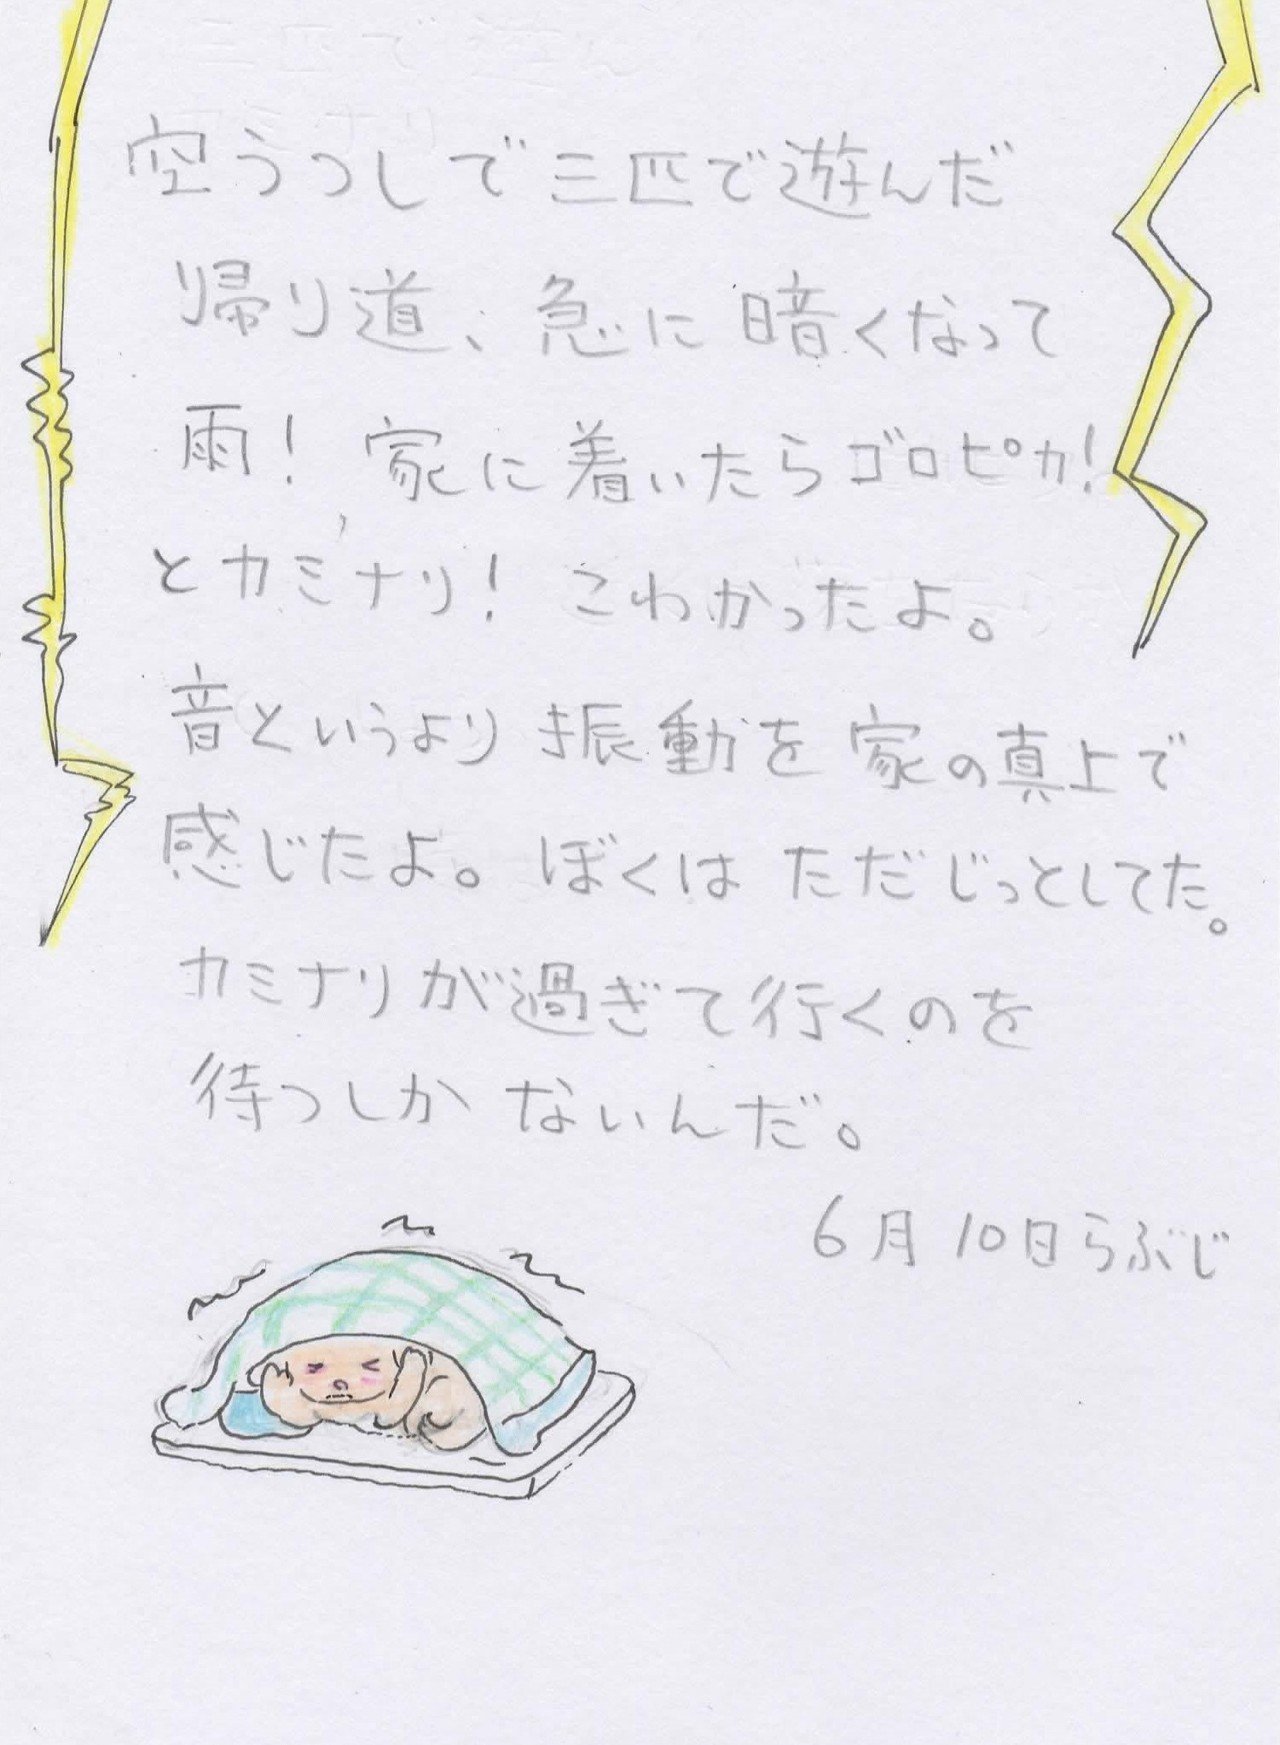 空うつしで三匹で遊んだ
帰り道、急に暗くなって
雨！家に着いたらゴロピカ！
とカミナリ！こわかったよ。
音というより振動を家の真上で
感じたよ。ぼくはただじっとしてた。
カミナリが過ぎて行くのを
待つしかないんだ。
6月10日らぶじ